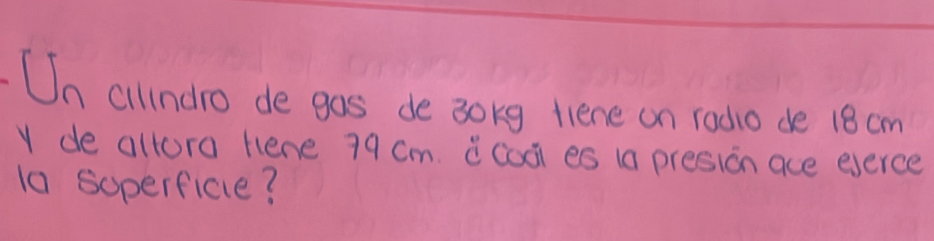 - Un cilindro de gas de 30kg tiene un radio de 18 cm
y de altura tiene 79 cm. ¿Cuál es la presión que ejerce
la superficie?